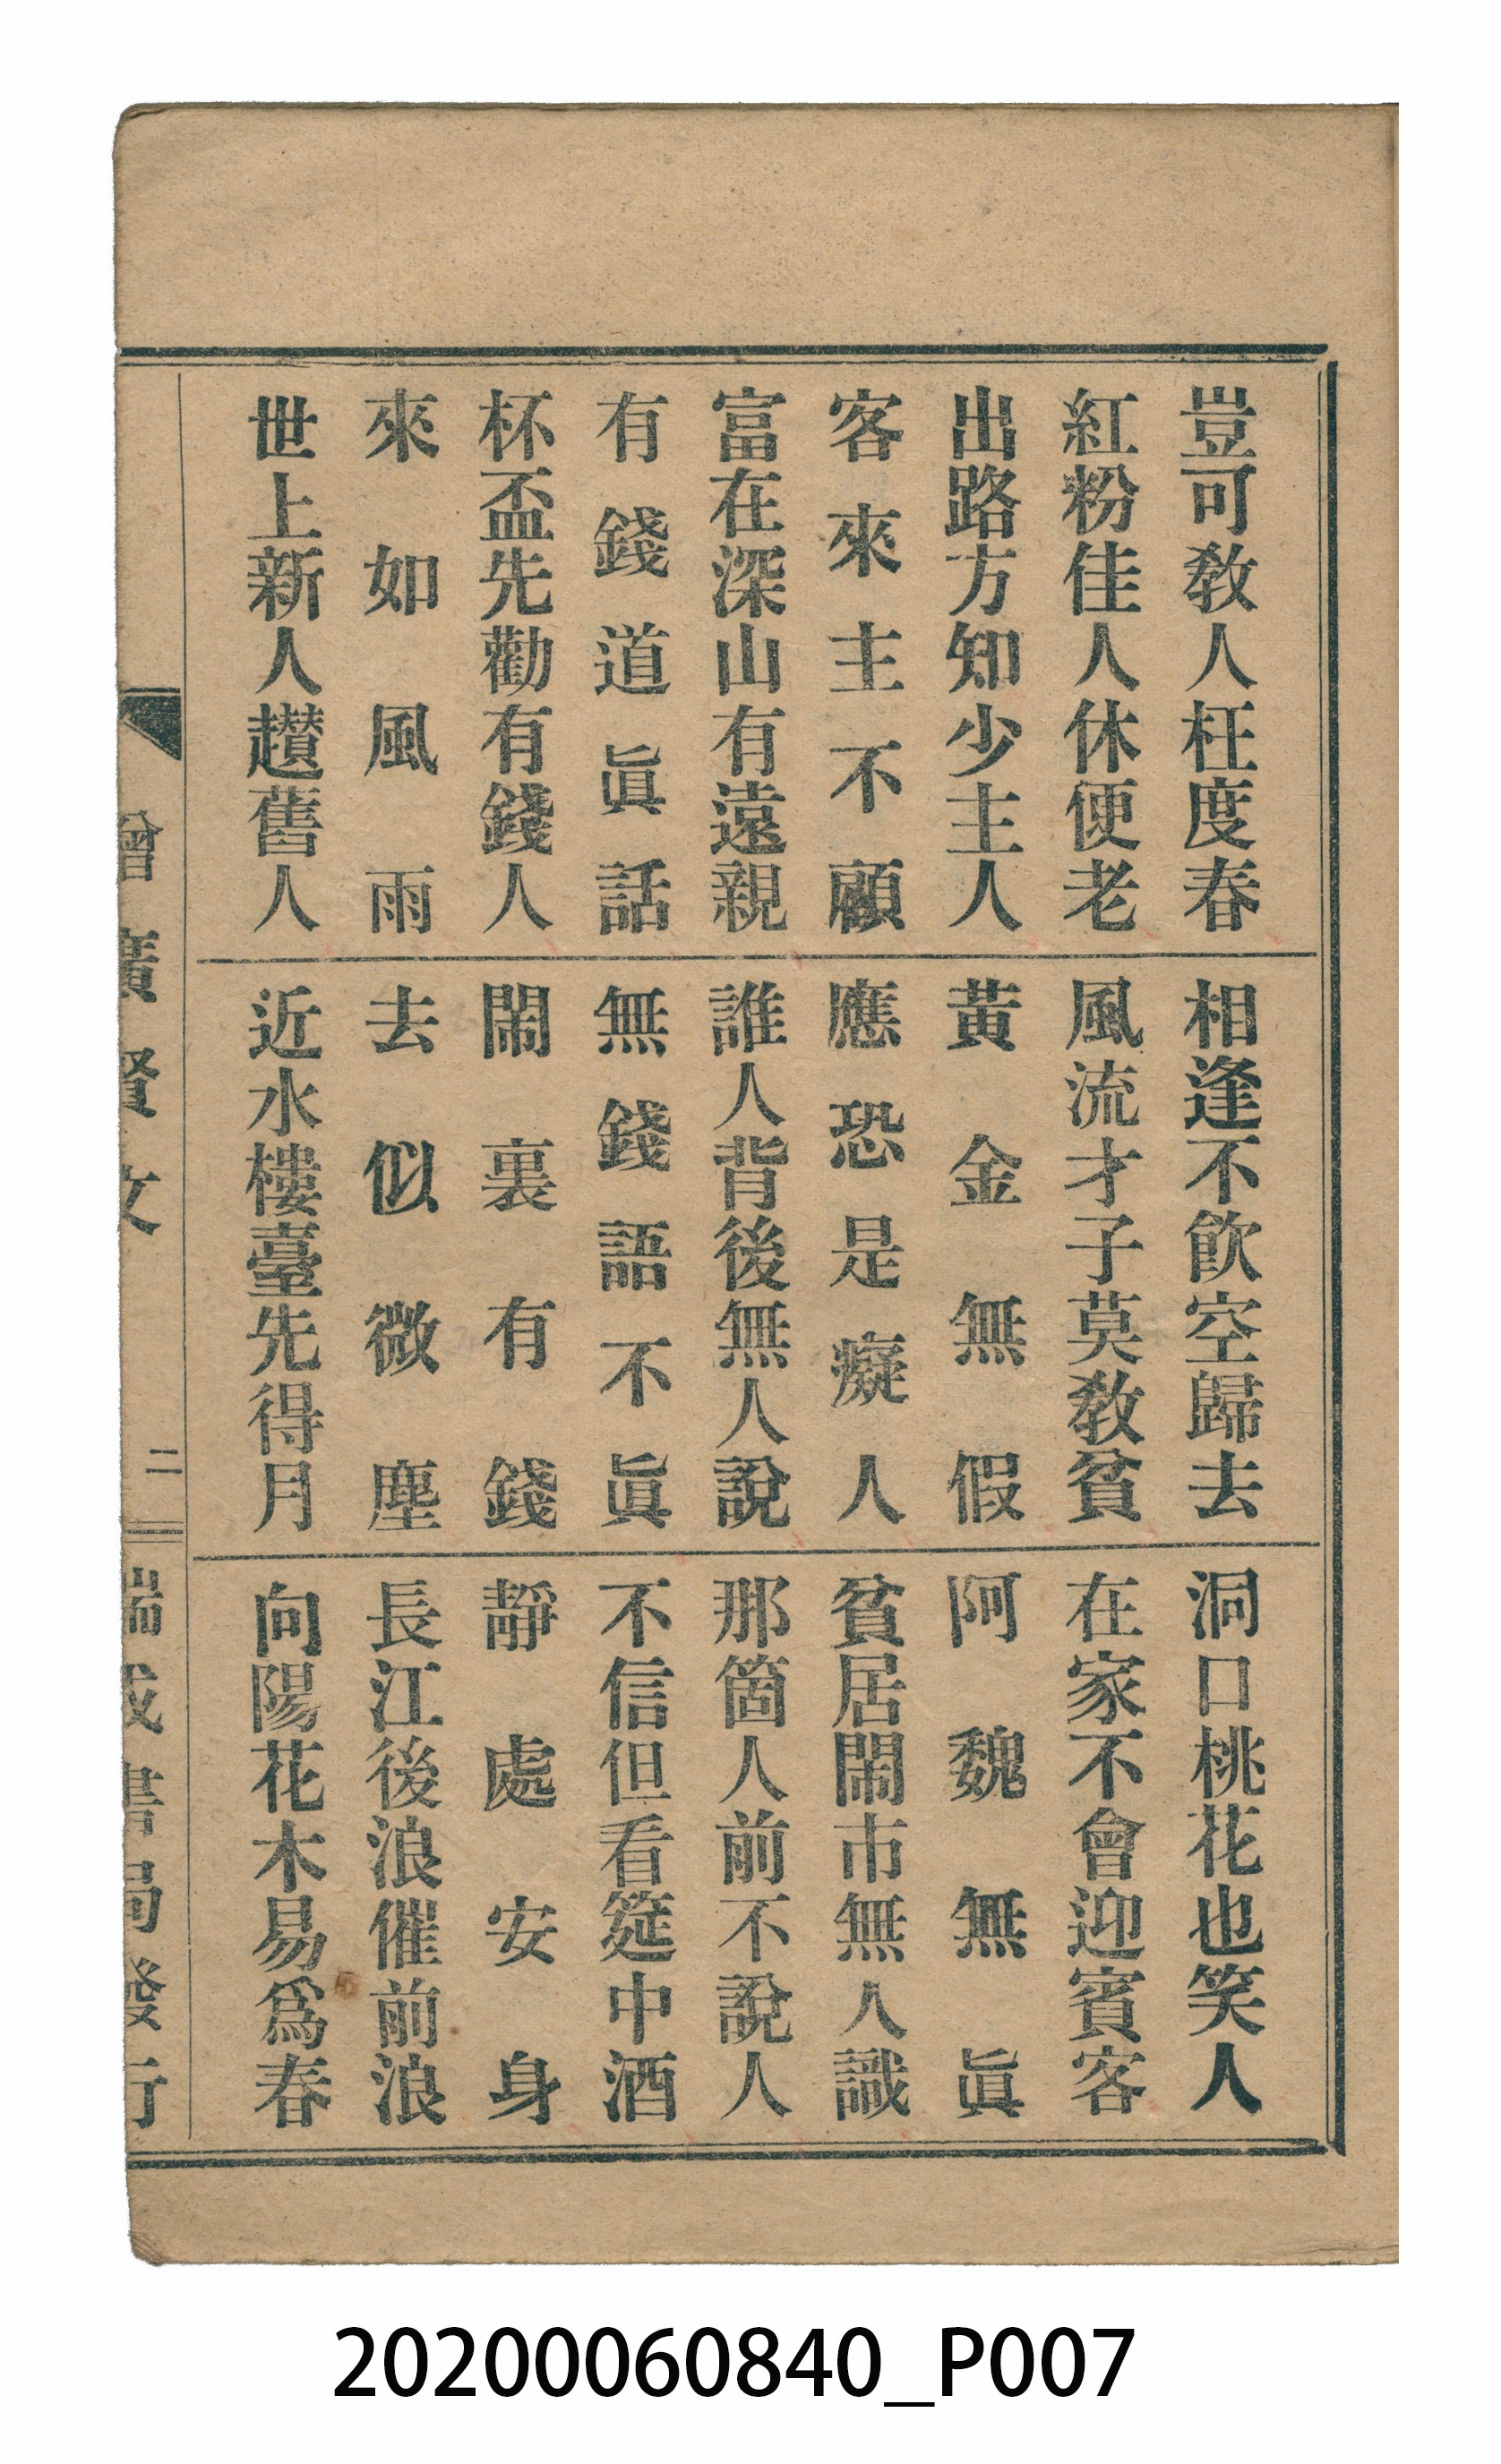 豈可敎人枉度春
相逢不飮空歸去
洞口桃花也笑人
紅粉佳人休便老
風流才子莫敎貧
在家不會迎賓客
出路方知少主人
黃金無假
阿魏無眞
客來主不顧
應恐是癡人
貧居鬧市無人識
富在深山有遠親
誰人背後無人說
那箇人前不說人
有錢道眞話
無錢語不眞
不信但看筵中酒
杯盃先勸有錢人
鬧裏有錢
靜處安身
來如風雨
去似微塵
長江後浪催前浪
世上新人趲舊人
近水樓臺先得月
向陽花木易爲春
增廣賢文
二
瑞成書局發行
20200060840_P007